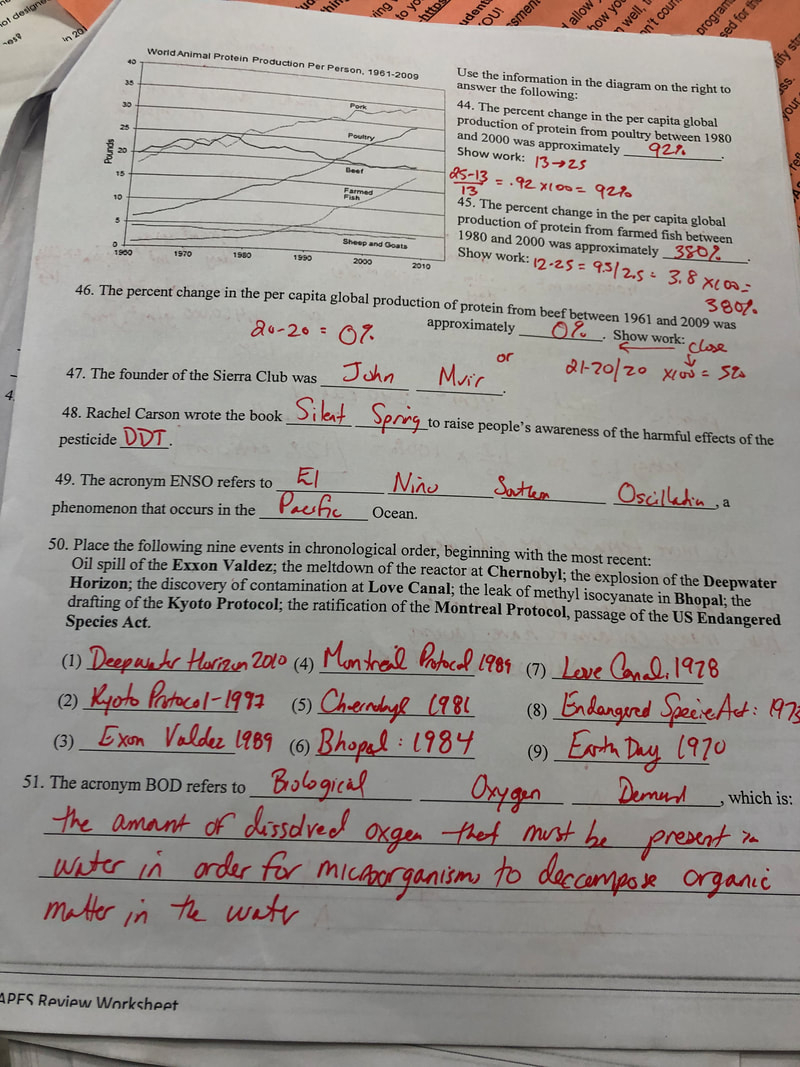 ot designe
ness?
in 20
ving w
to yo
https
udents
OU!
sment
allow y
how you
m well, t
n't coun
program
sed for th
your
World Animal Protein Production Per Person, 1961-2009
40
35
30
25
20
15
10
5
0
Pounds
Pork
Poultry
Beef
Farmed
Fish
Sheep and Goats
1960 1970 1980 1990 2000 2010
Use the information in the diagram on the right to
answer the following:
44. The percent change in the per capita global
production of protein from poultry between 1980
and 2000 was approximately 92%.
Show work: 13→25
25-13/13 = .92 x100 = 92%
45. The percent change in the per capita global
production of protein from farmed fish between
1980 and 2000 was approximately 380%.
Show work: 12-25 = 9.5/2.5 = 3.8 x100 =
380%
46. The percent change in the per capita global production of protein from beef between 1961 and 2009 was
approximately 0%. Show work:
20-20 = 0%
close
or
21-20/20 x100 = 5%
47. The founder of the Sierra Club was John Muir.
48. Rachel Carson wrote the book Silent Spring to raise people's awareness of the harmful effects of the
pesticide DDT.
49. The acronym ENSO refers to El Niño Southern Oscillation, a
phenomenon that occurs in the Pacific Ocean.
50. Place the following nine events in chronological order, beginning with the most recent:
Oil spill of the Exxon Valdez; the meltdown of the reactor at Chernobyl; the explosion of the Deepwater
Horizon; the discovery of contamination at Love Canal; the leak of methyl isocyanate in Bhopal; the
drafting of the Kyoto Protocol; the ratification of the Montreal Protocol, passage of the US Endangered
Species Act.
(1) Deepwater Horizon 2010 (4) Montreal Protocol 1989 (7) Love Canal, 1978
(2) Kyoto Protocol-1997 (5) Chernobyl 1986 (8) Endangered Species Act: 1973
(3) Exon Valdez 1989 (6) Bhopal: 1984 (9) Earth Day 1970
51. The acronym BOD refers to Biological Oxygen Demand, which is:
the amount of dissolved oxgen that must be present in
water in order for microorganisms to decompose organic
matter in the water
APES Review Worksheet